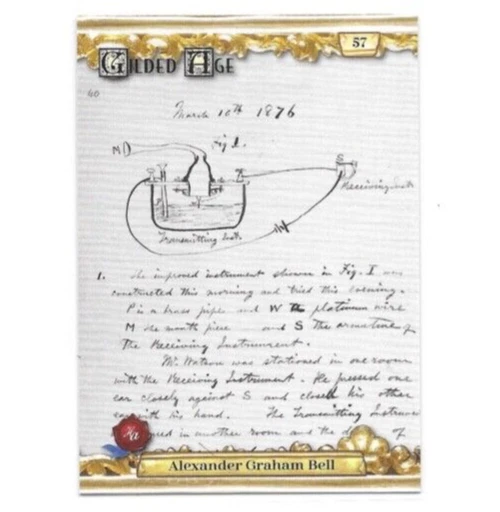 57
GILDED AGE
60
March 10th 1876
Fig 1.
M
S
Receiving Inst.
Transmitting Inst.
1. The improved instrument shown in Fig. I was
constructed this morning and tried this evening.
P is a brass pipe and W the platinum wire
M the mouth piece and S the armature of
the Receiving Instrument.
Mr. Watson was stationed in one room
with the Receiving Instrument. He pressed one
ear closely against S and closed his other
ear with his hand. The Transmitting Instrument
in another room and the of
Alexander Graham Bell